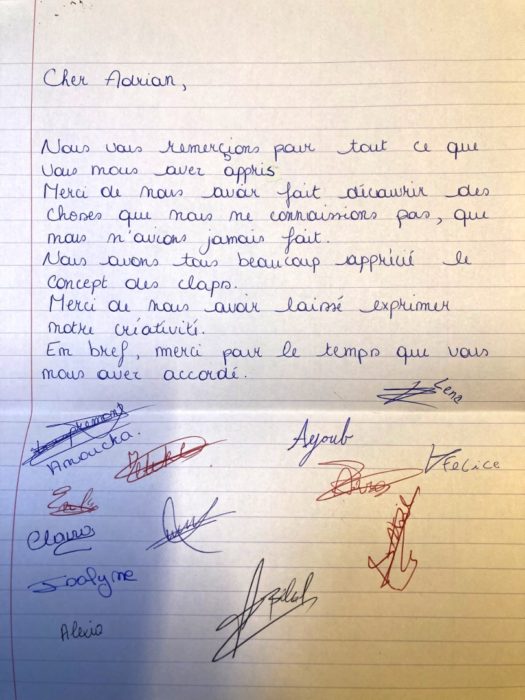 Cher Adrian,
Nous vous remerçions pour tout ce que
vous nous avez appris
Merci de nous avoir fait découvrir des
choses que nous ne connaissions pas, que
nous n'avions jamais fait.
Nous avons tous beaucoup apprécié le
concept des claps.
Merci de nous avoir laissé exprimer
notre créativité.
En bref, merci pour le temps que vous
nous avez accordé.
Lena
Anoucka.
Ayoub
Felice
Clara
Joalyne
Alexia
Bilal